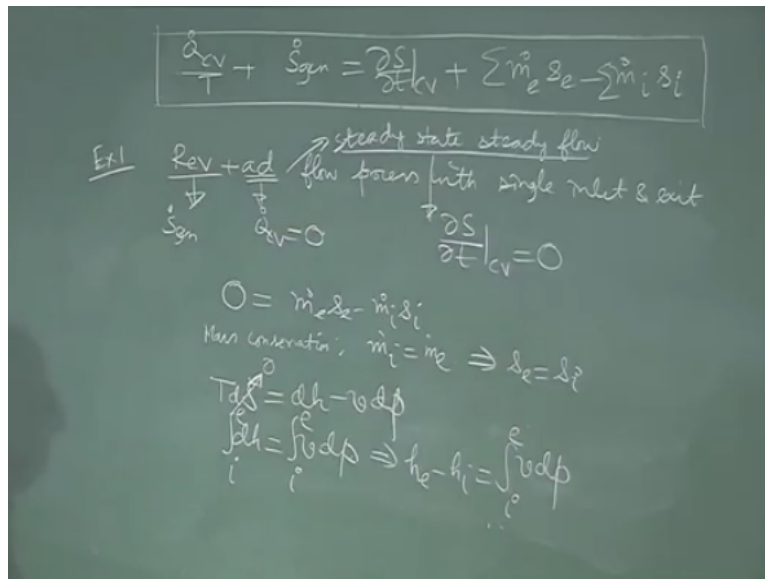 Q̇cv/T + Ṡgen = ∂S/∂t|cv + Σṁe se – Σṁi si
steady state steady flow
Ex1 Rev + ad flow process with single inlet & exit
Ṡgen Q̇cv = 0 ∂S/∂t|cv = 0
0 = ṁe se – ṁi si
Mass conservation: ṁi = ṁe ⇒ se = si
0
Tds = dh – vdp
∫ie dh = ∫ie vdp ⇒ he – hi = ∫ie vdp